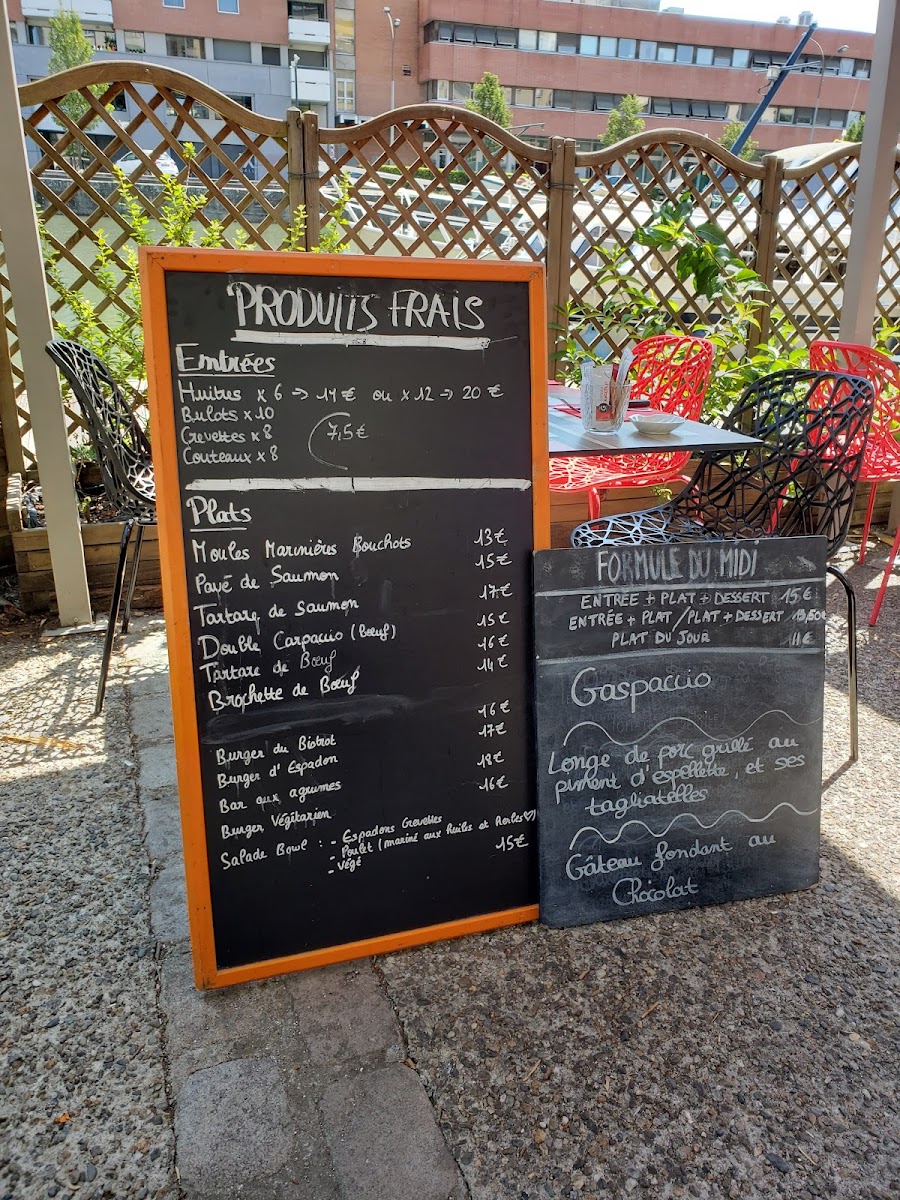 PRODUITS FRAIS
Entrées
Huitres x 6 → 14 € ou x 12 → 20 €
Bulots x 10
Crevettes x 8
7,5 €
Couteaux x 8
Plats
Moules Marinières Bouchots 13 €
Pavé de Saumon 15 €
Tartare de Saumon 17 €
Double Carpaccio (Bœuf) 15 €
Tartare de Bœuf 16 €
Brochette de Bœuf 14 €
Burger du Bistrot 16 €
Burger d'Espadon 17 €
Bar aux agrumes 18 €
Burger Végétarien 16 €
Salade Bowl : - Espadons Crevettes
- Poulet (mariné aux Huiles et Herbes)
- Végé 15 €
FORMULE DU MIDI
ENTREE + PLAT + DESSERT 15 €
ENTRÉE + PLAT / PLAT + DESSERT 13,50€
PLAT DU JOUR 11 €
Gaspaccio
Longe de porc grillé au
piment d'espellette, et ses
tagliatelles
Gâteau fondant au
Chocolat